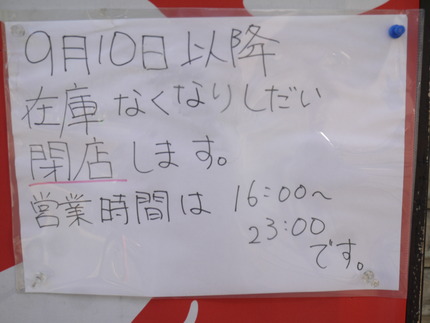 9月10日以降
在庫なくなりしだい
閉店します。
営業時間は 16:00～
23:00
です。